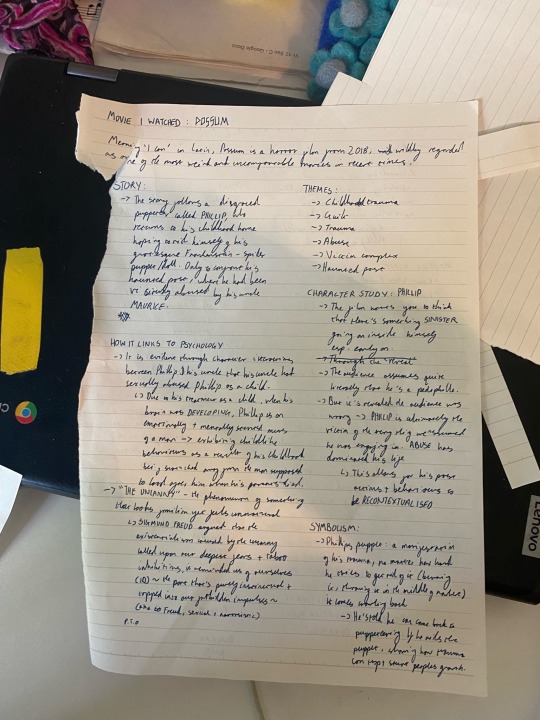 MOVIE I WATCHED : POSSUM
Meaning 'I can' in Latin, Possum is a horror film from 2018, widely regarded
as one of the most weird and uncomfortable movies in recent times.
STORY:
-> The story follows a disgraced
puppeteer called PHILLIP, who
returns to his childhood home
hoping to rid himself of his
grotesque Frankenstein - spider
puppet/doll. Only to confront his
haunted past, where he had been
abused by his uncle
MAURICE.
HOW IT LINKS TO PSYCHOLOGY
-> It is evident through character interactions
between Phillip & his uncle that his uncle had
sexually abused Phillip as a child.
↳ Due to his treatment as a child, when his
brain was DEVELOPING, Phillip is an
emotionally + mentally stunted mess
of a man -> exhibiting childlike
behaviours as a result of his childhood
being snatched away from the man supposed
to look after him when his parents died.
-> "THE UNCANNY" - the phenomenon of something
that looks familiar yet feels unnatural
↳ SIGMUND FREUD argued that the
caused by the uncanny
called upon our deepest fears + taboo
it reminded us of ourselves
(ID) ~ the part that's purely +
tapped into our forbidden impulses ~
P.T.O
THEMES:
-> Childhood trauma
-> Guilt
-> Trauma
-> Abuse
-> Victim complex
-> Haunted past
CHARACTER STUDY: PHILLIP
-> The film wants you to think
that there's something SINISTER
going on inside himself
esp. early on.
-> Through the 'reveal'
-> The audience assumes quite
literally that he's a pedophile.
-> But it's revealed the audience was
wrong -> PHILLIP is ultimately the
victim of the very thing we assumed
he was engaging in. ABUSE has
dominated his life
↳ This allows for his past
actions + behaviours to
be RECONTEXTUALISED
SYMBOLISM:
-> Phillips puppet: a manifestation
of his trauma, no matter how hard
he tries to get rid of it (burning
it, throwing it in the middle of nature)
it comes crawling back
-> He's told he can come back to
puppeteering if he rids the
puppet, showing how trauma
can stop / stunt peoples growth.
Lenovo